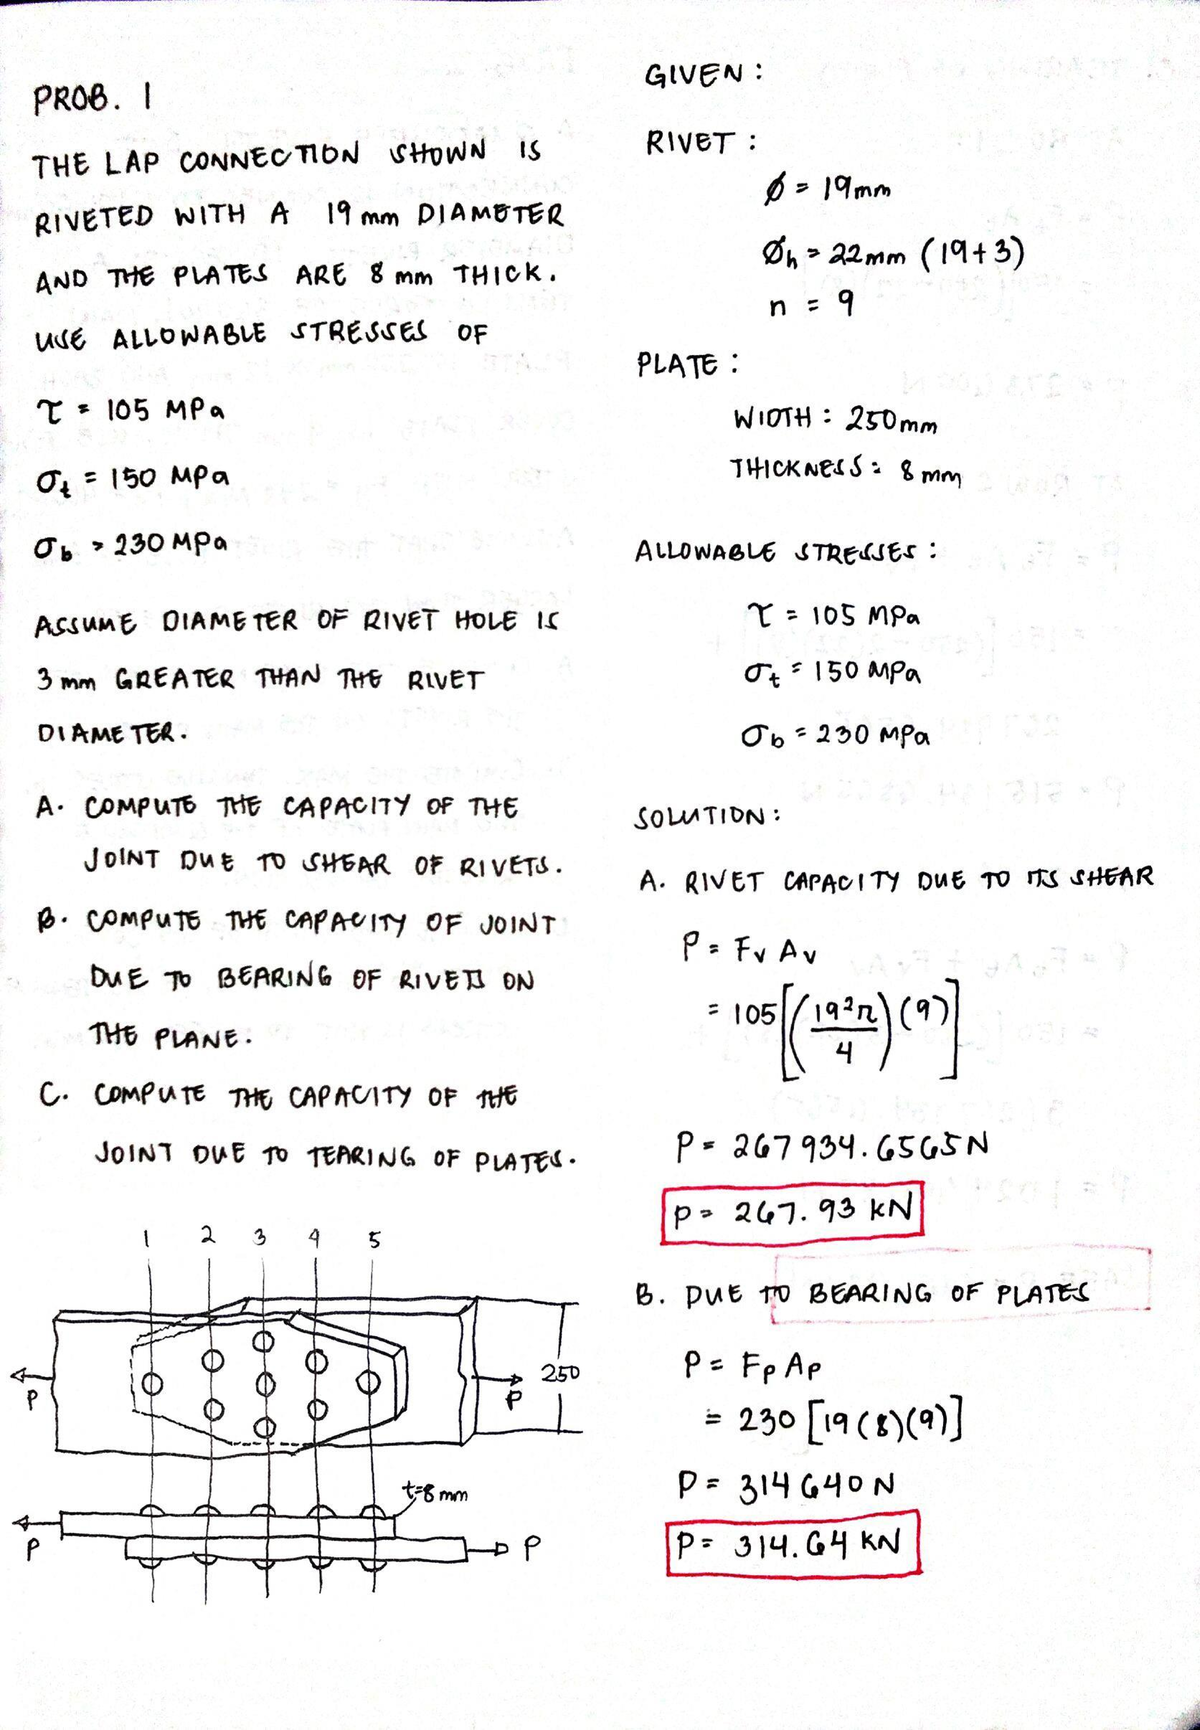 PROB. 1
THE LAP CONNECTION SHOWN IS
RIVETED WITH A 19 mm DIAMETER
AND THE PLATES ARE 8 mm THICK.
USE ALLOWABLE STRESSES OF
τ = 105 MPa
σt = 150 MPa
σb = 230 MPa
ASSUME DIAMETER OF RIVET HOLE IS
3 mm GREATER THAN THE RIVET
DIAMETER.
A. COMPUTE THE CAPACITY OF THE
JOINT DUE TO SHEAR OF RIVETS.
B. COMPUTE THE CAPACITY OF JOINT
DUE TO BEARING OF RIVETS ON
THE PLANE.
C. COMPUTE THE CAPACITY OF THE
JOINT DUE TO TEARING OF PLATES.
1 2 3 4 5
250
P P
t=8 mm
P P
GIVEN:
RIVET:
Ø = 19mm
Øh = 22mm (19+3)
n = 9
PLATE:
WIDTH: 250mm
THICKNESS: 8 mm
ALLOWABLE STRESSES:
τ = 105 MPa
σt = 150 MPa
σb = 230 MPa
SOLUTION:
A. RIVET CAPACITY DUE TO ITS SHEAR
P = Fv Av
= 105[(19²π/4)(9)]
P = 267934.6565N
P = 267.93 kN
B. DUE TO BEARING OF PLATES
P = Fp Ap
= 230 [19(8)(9)]
P = 314640N
P = 314.64 kN